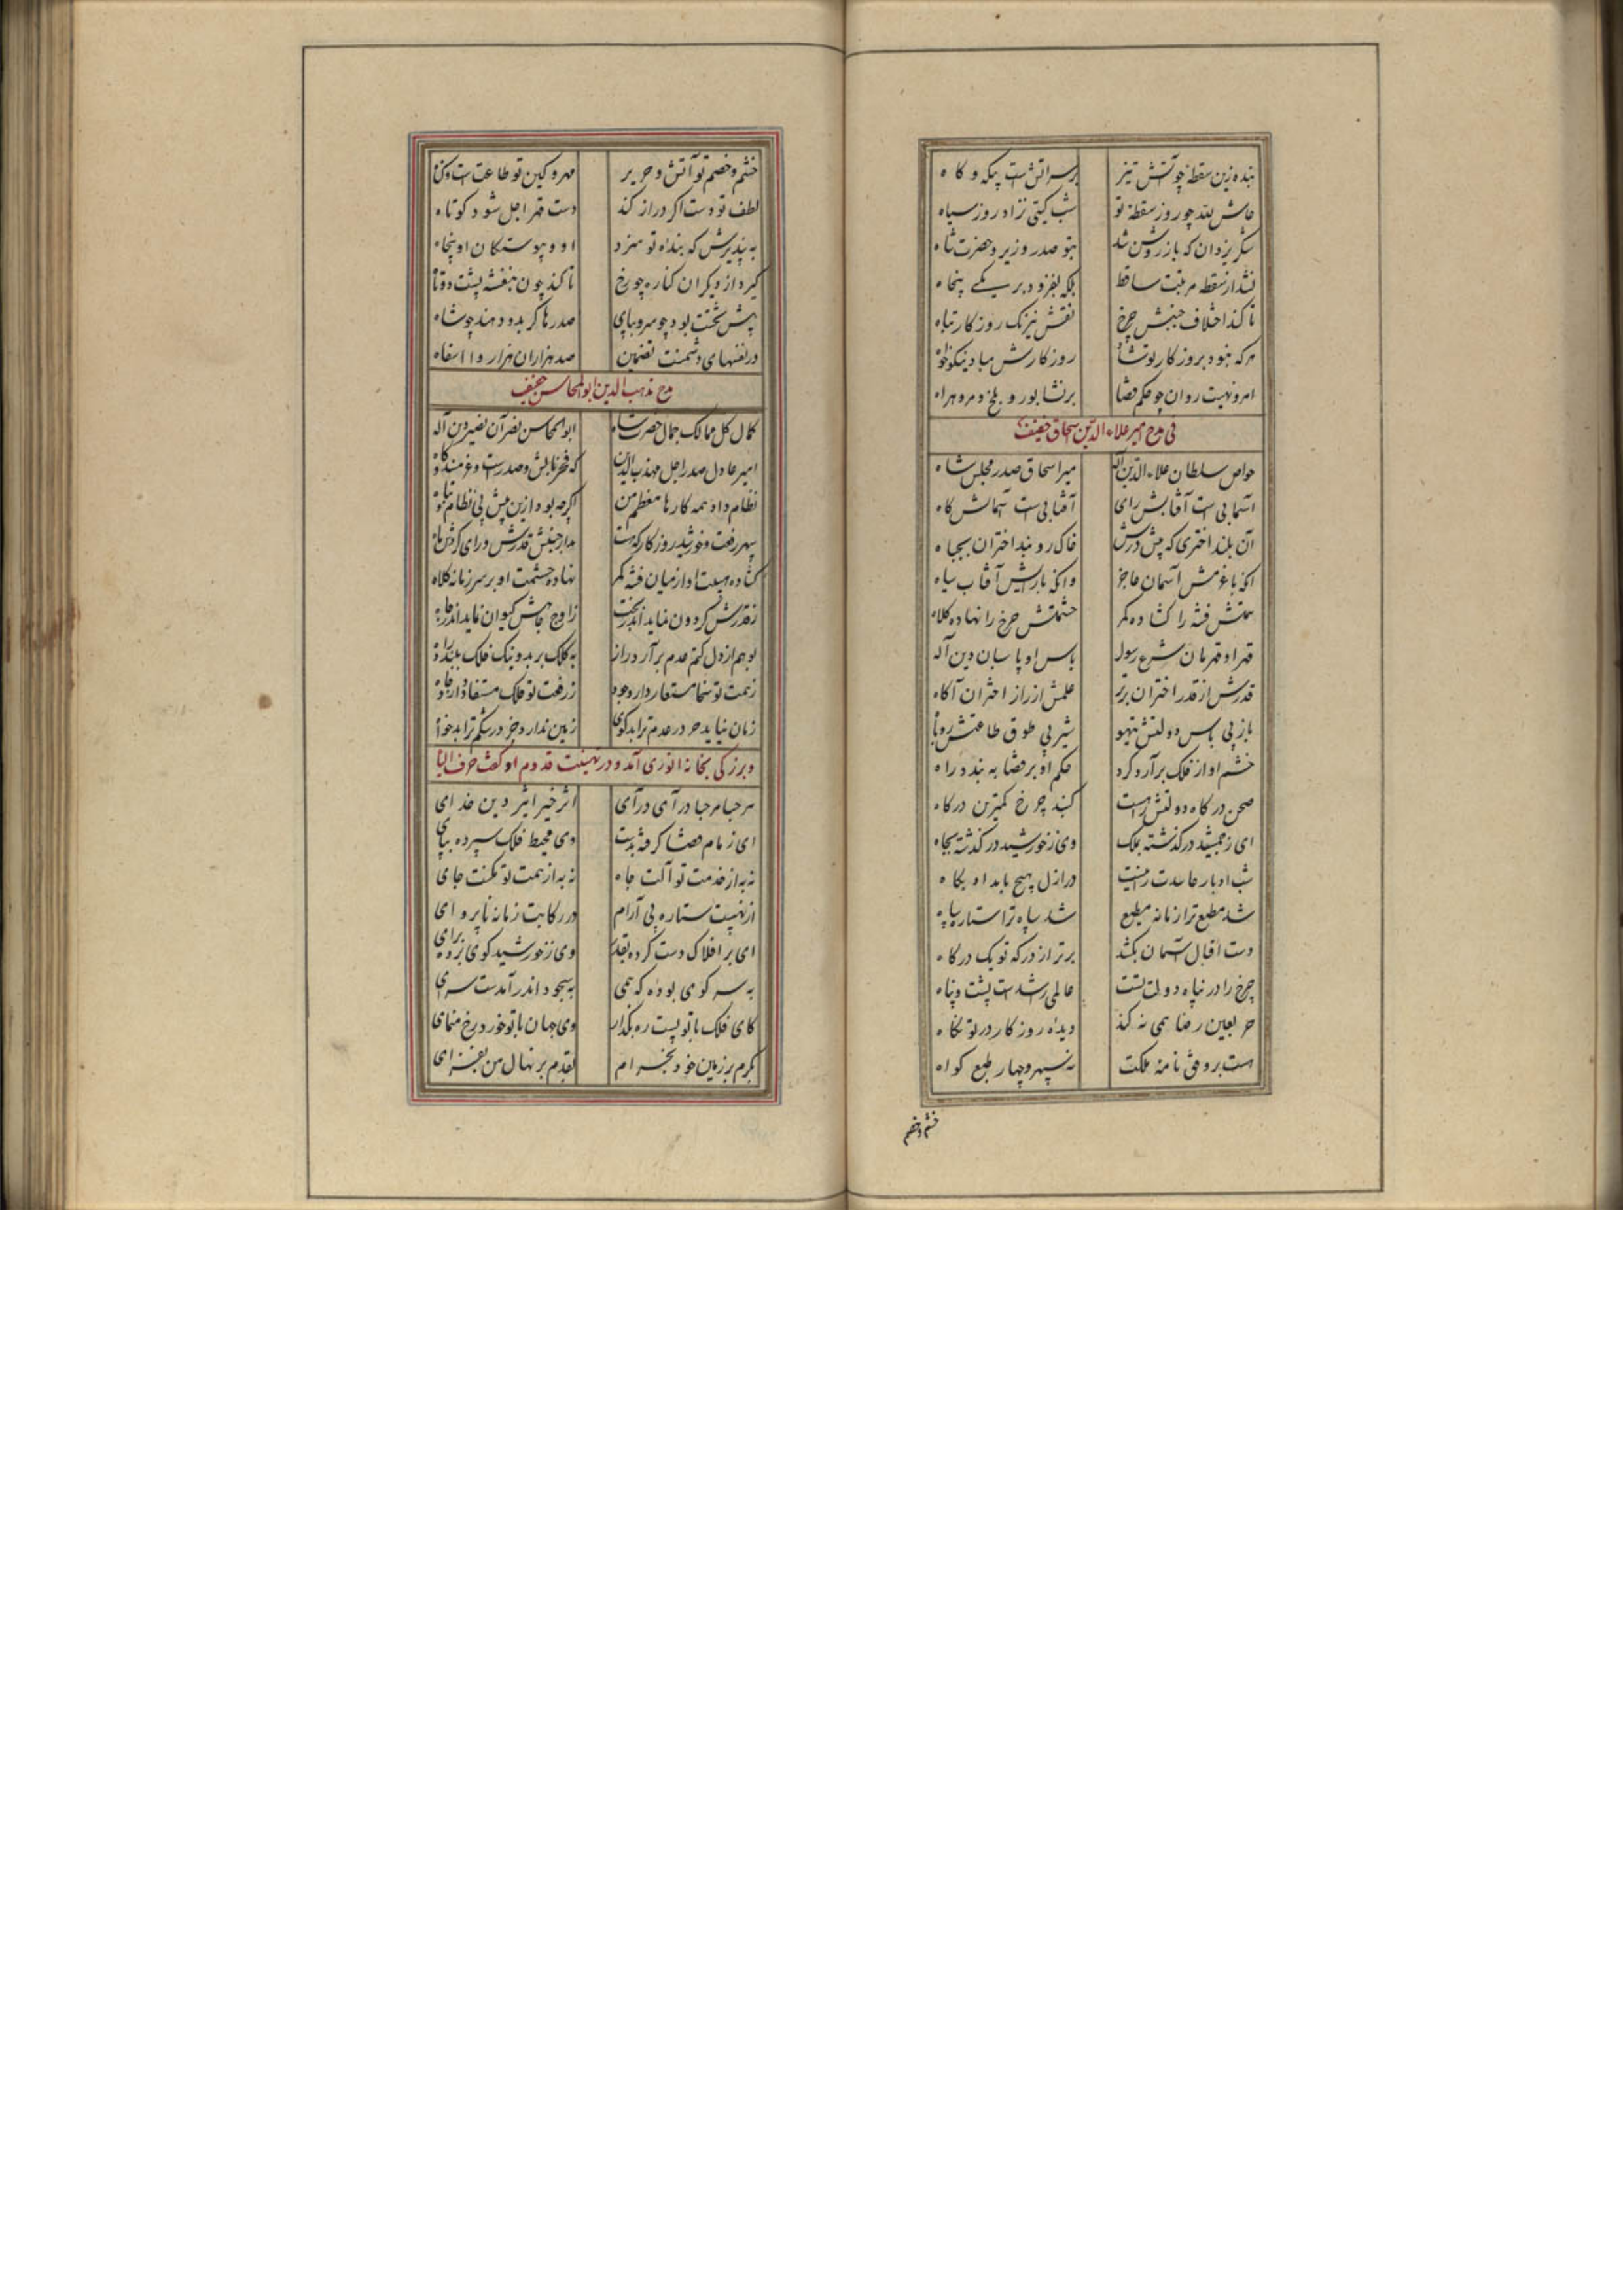 بنده زین سقطه چو آتش تیز بر سر آتش است پیکه و کاه
حاش لله چو روز سقطه تو شب گیتی نزاد روز سیاه
شکر یزدان که باز روشن شد بتو صدر وزیر و حضرت شاه
نشد از سقطه مرتبت ساقط بلکه بفزود بر یکی پنجاه
تا کند اختلاف جنبش چرخ نقش نیرنک روزکار تباه
هر که نبود بروزکار تو شاد روزکارش مباد نیکو خواه
امر و نهیت روان چو حکم قضا بر نشابور و بلخ و مرو و هراه
فی مدح میر علاء الدین اسحاق خفیف
خواص سلطان علاء الدین اله میر اسحاق صدر مجلس شاه
آسمانی است آفتابش رای آفتابی است آسمانش کاه
آن بلند اختری که پیش درش خاک روبند اختران بجباه
آنکه با عزمش آسمان عاجز وانکه با رایش آفتاب سیاه
همتش فتنه را کشاده کمر حشمتش چرخ را نهاده کلاه
قهر او قهرمان شرع رسول باس او پاسبان دین آله
قدرش از قدر اختران برتر علمش از راز اختران آکاه
باز بی باس دولتش تیهو شیر بی طوق طاعتش روباه
خشم او از فلک برآرد کرد حکم او بر قضا به بندد راه
صحن درکاه دولتش راست کنبد چرخ کمترین درکاه
ای ز جمشید درکذشته بملک وی ز خورشید درکذشته بجاه
شب ادبار حاسدت را نیست در ازل هیچ بامداد پکاه
شد مطیع ترا زمانه مطیع شد سپاه ترا ستاره سپاه
دست اقبال آسمان نکشد برتر از درکه تو یک درکاه
چرخ را در پناه دولت تست عالمی را شدست پشت و پناه
جز بعین رضا همی نکند دیده روزکار در تو نکاه
هست بر وفق نامهٔ ملکت نه سپهر و چهار طبع کواه
خشم و خصم
خشم و خصم تو آتش و حریر مهر و کین تو طاعت است و کناه
لطف تو دست اکر دراز کند دست قهر اجل شود کوتاه
به پذیرش که بنده تو سزد او و پیوستکان او پنجاه
کیرد از دیکران کناره چو رخ تا کند چون بنفشه پشت دوتاه
پیش تختت بود چو سر و بپای صدرها کر بدو دهند چو شاه
در نفسهای دشمنت تضمین صد هزاران هزار وا اسفاه
مدح مذهب الدین ابو المحاسن خفیف
کمال کل ممالک جمال حضرت شاه ابو المحاسن نصر آن نصیر دین آله
امیر عادل صدر اجل مهذب الدین که فخر بالش و صدرست و عز مسند و کاه
نظام داد همه کارها معظم من اکرچه بود ازین پیش بی نظام و تباه
سپهر رفعت و خورشید روزکار که هست مدار جنبش قدرش ورای کردش ماه
کشاده هیبت او از میان فتنه کمر نهاده حشمت او بر سر زمانه کلاه
ز قدرش کردون نماید اندر تخت ز اوج جاهش کیوان نماید اندر چاه
بوهم از دل کتم عدم برآرد راز به کلک بر بد و نیک فلک ببندد راه
ز همت تو سخا مستعار دارد وجود ز رفعت تو فلک مستفاد دارد جاه
زمان نیاید جز در عدم ترا بدکوی زمین ندارد جز در شکم ترا بدخواه
و بزرکی بخانه انوری آمد و در تهنیت قدوم او کفت حرف الیا
مرحبا مرحبا درآی درآی اثر خیر ایثر دین خدای
ای زمام قضا کرفته بدست وی محیط فلک سپرده بپای
نه به از خدمت تو آلت جاه نه به از همت تو مکنت جای
از نهیبت ستاره بی آرام در رکابت زمانه ناپروای
ای بر افلاک دست کرده بقدر وی ز خورشید کوی برده برای
به سر کوی بوده که همی به سجود اندر آمدست سرای
کای فلک با تو پست ره بکذار وی جهان با تو خورد رخ منمای
بکرم بر زمین خود بخرام بقدم بر نهال من بفزای